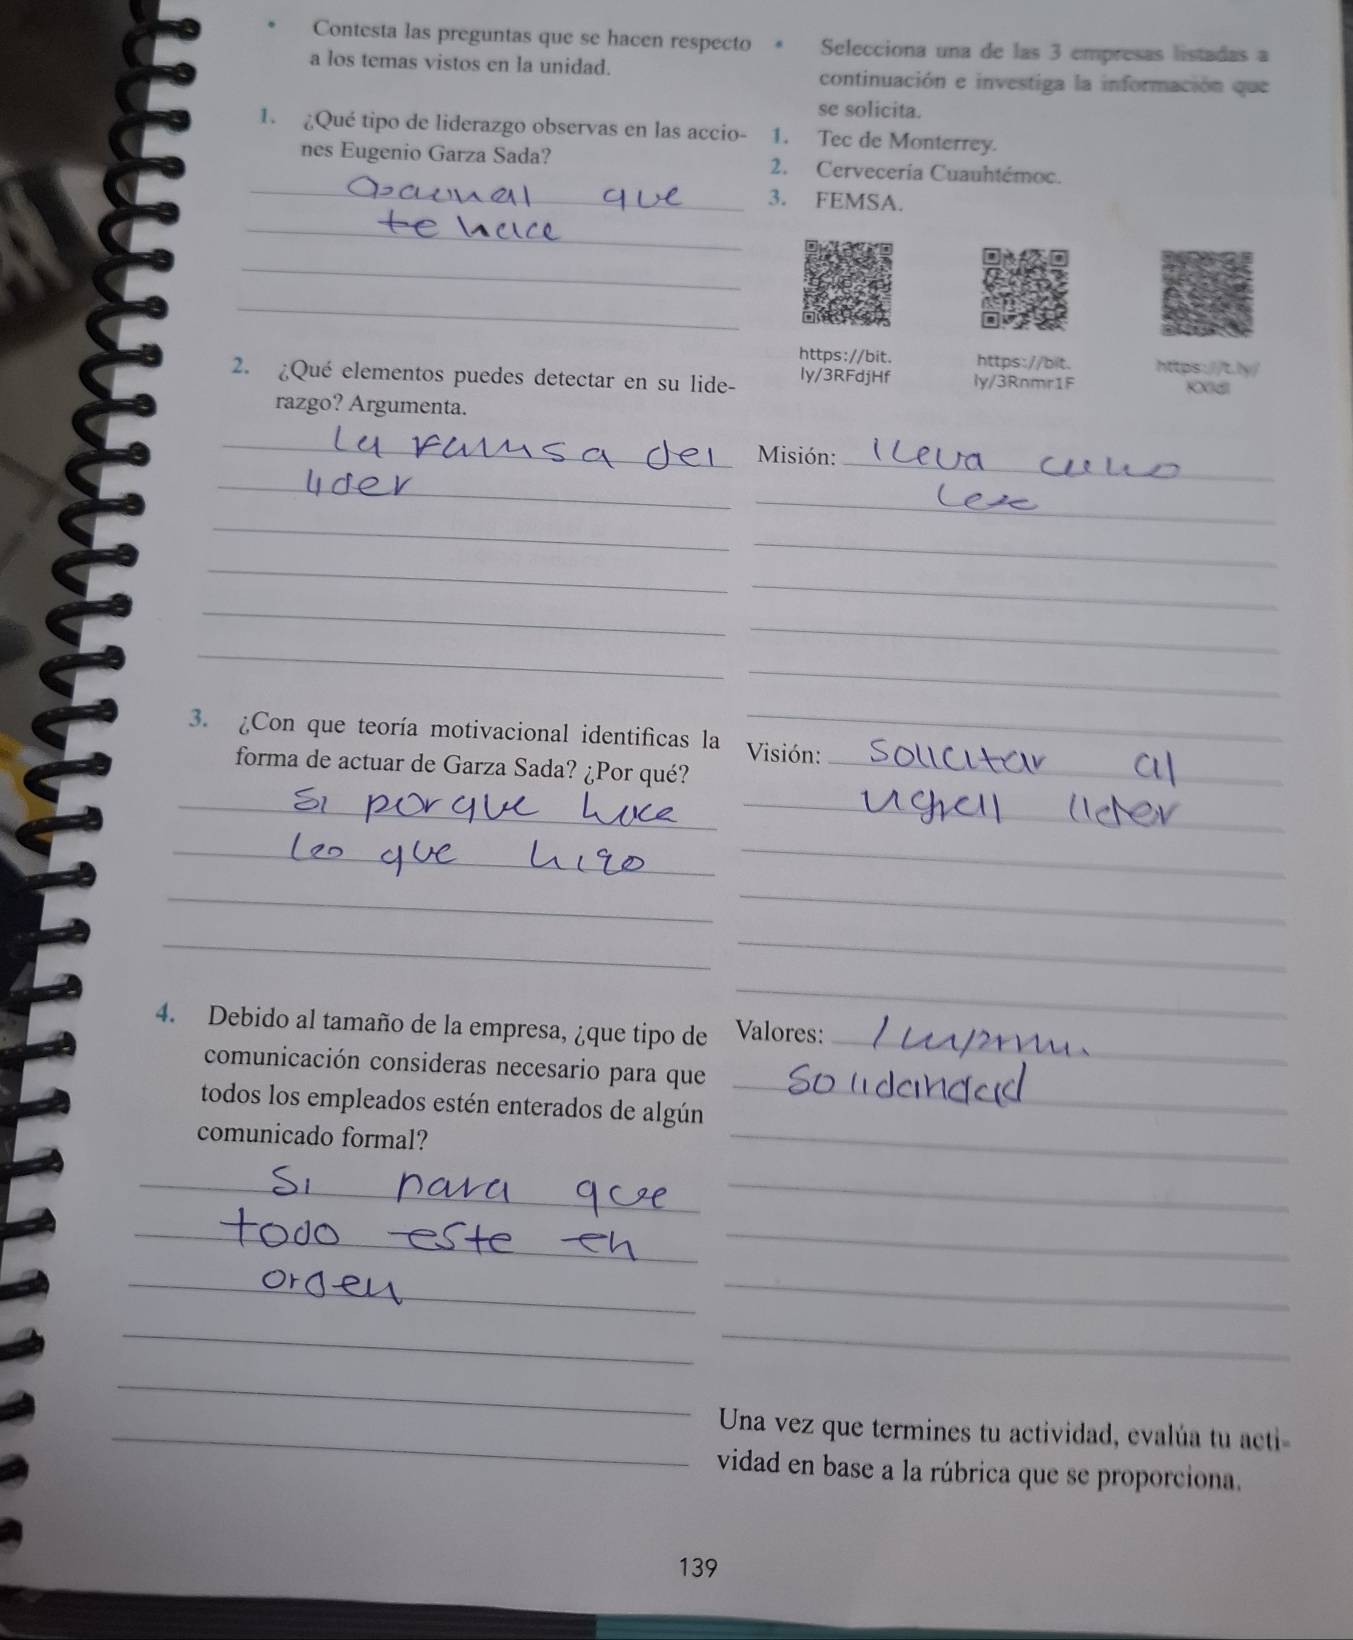 • Contesta las preguntas que se hacen respecto
a los temas vistos en la unidad.
1. ¿Qué tipo de liderazgo observas en las accio-
nes Eugenio Garza Sada?
que
te hace
2. ¿Qué elementos puedes detectar en su lide-
razgo? Argumenta.
La del
lider
3. ¿Con que teoría motivacional identificas la
forma de actuar de Garza Sada? ¿Por qué?
Si porque
que
4. Debido al tamaño de la empresa, ¿que tipo de
comunicación consideras necesario para que
todos los empleados estén enterados de algún
comunicado formal?
Si para que
todo este en
orden
• Selecciona una de las 3 empresas listadas a
continuación e investiga la información que
se solicita.
1. Tec de Monterrey.
2. Cervecería Cuauhtémoc.
3. FEMSA.
https://bit.
ly/3RFdjHf
https://bit.
ly/3Rnmr1F
https://t.ly/
Misión: lleva
Visión: Solicitar al
lider
Valores:
Solidaridad
Una vez que termines tu actividad, evalúa tu acti-
vidad en base a la rúbrica que se proporciona.
139